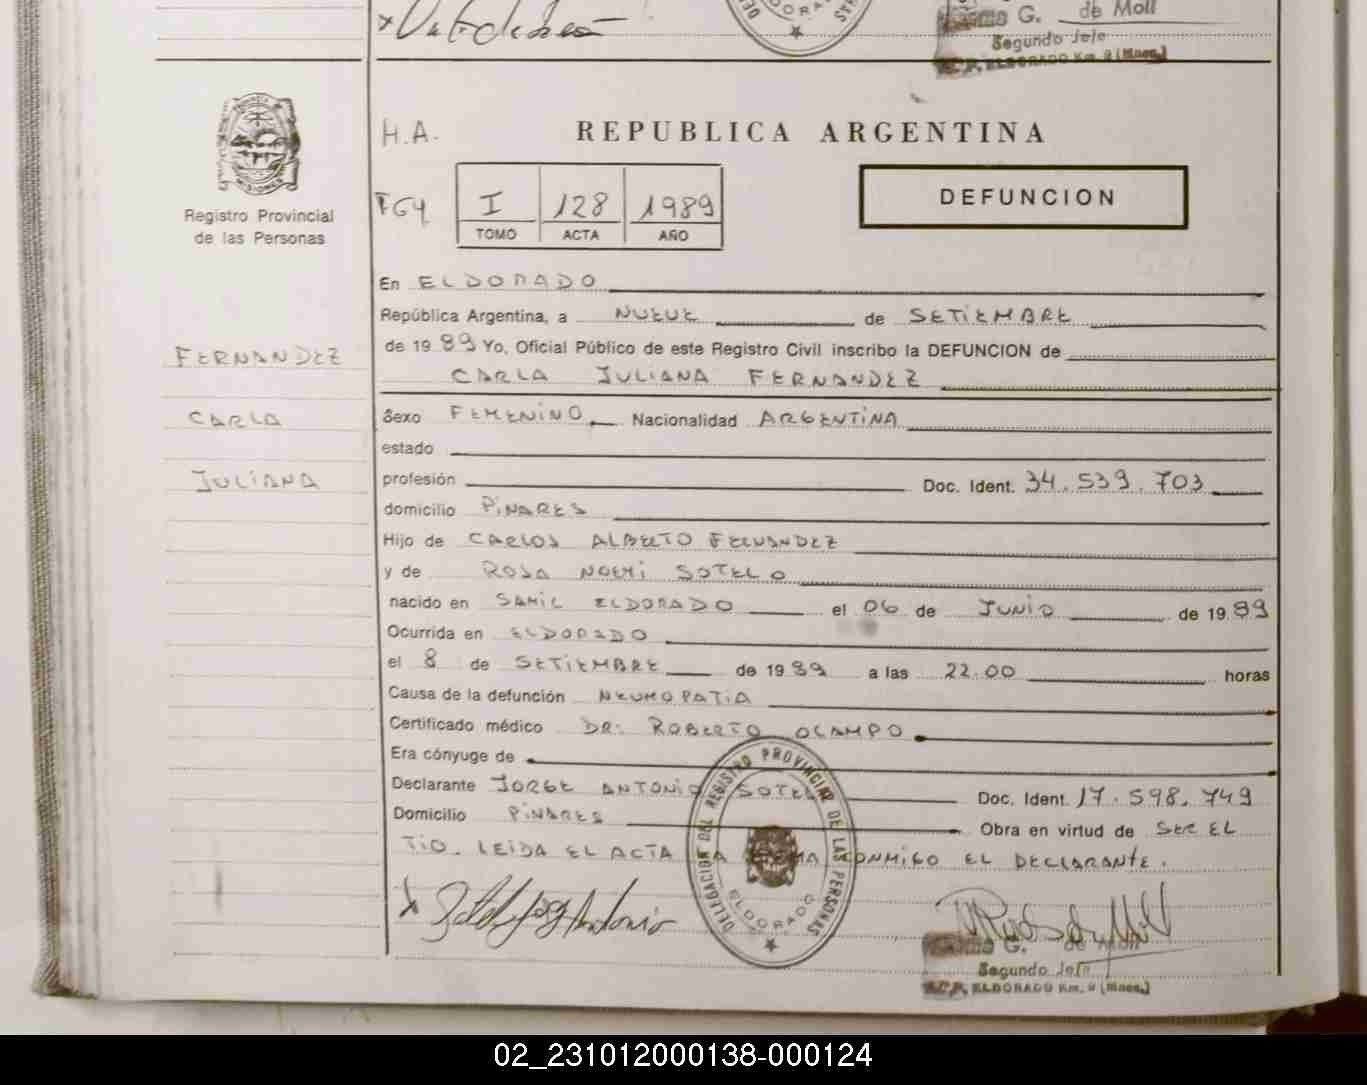 G. de Moll
Segundo Jefe
ELDORADO Km. 9 (Mnes.)
H.A.
REPUBLICA ARGENTINA
DEFUNCION
I 128 1989
TOMO ACTA AÑO
PROVINCIA
MISIONES
Registro Provincial
de las Personas
En ELDORADO
República Argentina, a NUEVE de SETIEMBRE
de 1989 Yo, Oficial Público de este Registro Civil inscribo la DEFUNCION de
CARLA JULIANA FERNANDEZ
FERNANDEZ
CARLA
JULIANA
Sexo FEMENINO Nacionalidad ARGENTINA
estado
profesión Doc. Ident. 34.539.703
domicilio PINARES
Hijo de CARLOS ALBERTO FERNANDEZ
y de ROSA NOEMI SOTELO
nacido en SAMIC ELDORADO el 06 de JUNIO de 1989
Ocurrida en ELDORADO
el 8 de SETIEMBRE de 1989 a las 22.00 horas
Causa de la defunción NEUMOPATIA
Certificado médico DR: ROBERTO OCAMPO
Era cónyuge de
Declarante JORGE ANTONIO SOTELO Doc. Ident. 17.598.749
Domicilio PINARES Obra en virtud de SER EL
TIO. LEIDA EL ACTA LA FIRMA CONMIGO EL DECLARANTE.
DELEGACION DEL REGISTRO PROVINCIAL DE LAS PERSONAS
ELDORADO
G. de Moll
Segundo Jefe
ELDORADO Km. 9 (Mnes.)
02_231012000138-000124